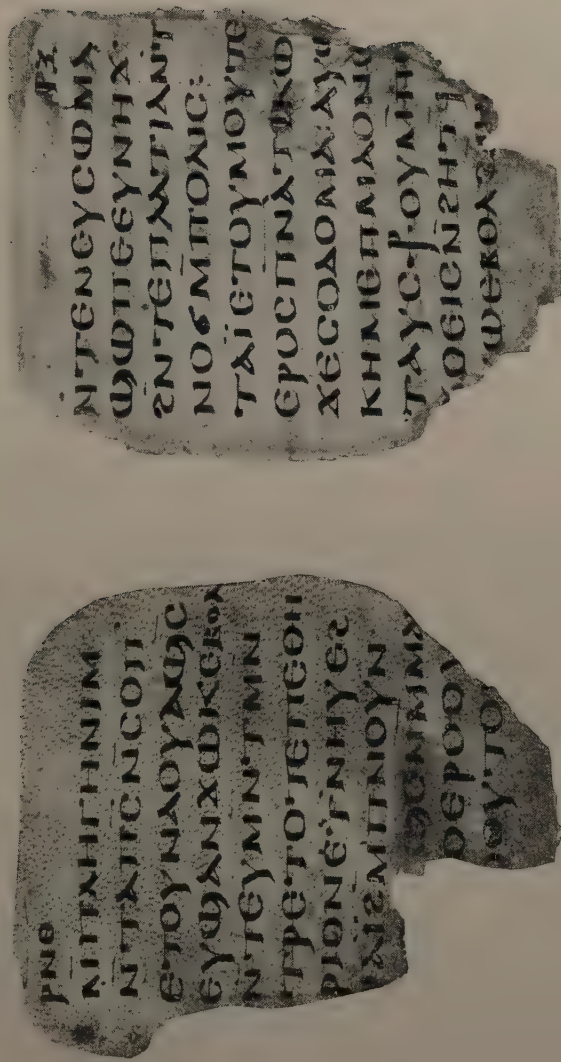 ⲣⲛⲑ
ⲛⲓⲡⲗⲏⲅⲏⲛⲓⲙ
ⲛⲧⲁⲡⲥⲛⲥⲟⲡ
ⲉⲧⲟⲩⲛⲁⲟⲩⲁϣⲥ
ⲉⲩϣⲁⲛϫⲱⲕⲉⲃⲟⲗ
ⲛⲧⲉⲩⲙⲛⲧⲙⲛ
ⲧⲣⲉⲧⲟⲧⲉⲡⲉⲑⲏ
ⲣⲓⲟⲛⲉⲧⲛⲏⲩⲉϩ
ⲣⲁⲓϩⲙⲡⲛⲟⲩⲛ
ϣⲉⲛⲙⲙⲁ
ⲟⲉⲣⲟⲟⲩ
ⲟⲩⲧⲟ
ⲣⲝ
ⲛⲧⲉⲛⲉⲩⲥⲱⲙⲁ
ϣⲱⲡⲉⲉⲩⲛⲏϫ·
ϩⲛⲧⲉⲡⲗⲁⲧⲓⲁⲛⲧ
ⲛⲟϭⲙⲡⲟⲗⲓⲥ:
ⲧⲁⲓ̈ⲉⲧⲟⲩⲙⲟⲩⲧⲉ
ⲉⲣⲟⲥⲡⲛⲁⲧⲓⲕⲱ
ϫⲉⲥⲟⲇⲟⲙⲁ·ⲁⲩⲱ
ⲕⲏⲙⲉⲡⲙⲁⲟⲛ
ⲧⲁⲩⲥⲣⲟⲩⲙⲡ
ϫⲟⲉⲓⲥⲛϩⲏⲧ
ϣⲉⲃⲟⲗ